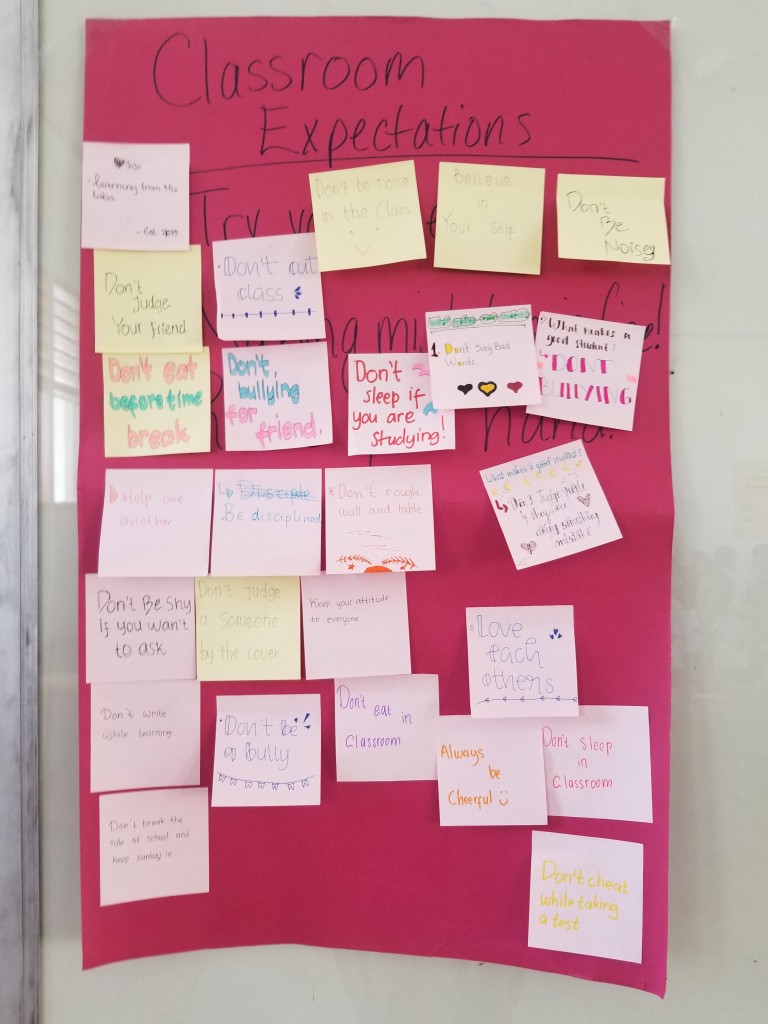 Classroom
Expectations
Try
fine!
hand!
learning from
Don't be noise
in the Class
Believe
in
Your self
Don't
Be
Noisey
Don't
Judge
Your friend
Don't cut
class
1. Don't Say Bad
Words.
What makes a
good student?
DON'T
BULLYING
Don't eat
before time
break
Don't
bullying
for
friend.
Don't
sleep if
you are
studying!
Help one
another
Be disciplined
Don't rough
wall and table
What makes a good student?
Don't Judge people
if they were
doing something
mistake
Don't Be Shy
if you wan't
to ask
Don't judge
a someone
by the cover.
Keep your attitude
to everyone
Love
each
others
Don't write
while learning
Don't Be
a Bully
Don't eat in
Classroom
Always
be
Cheerful
Don't sleep
in
Classroom
Don't break the
rule of school and
keep
Don't cheat
while taking
a test